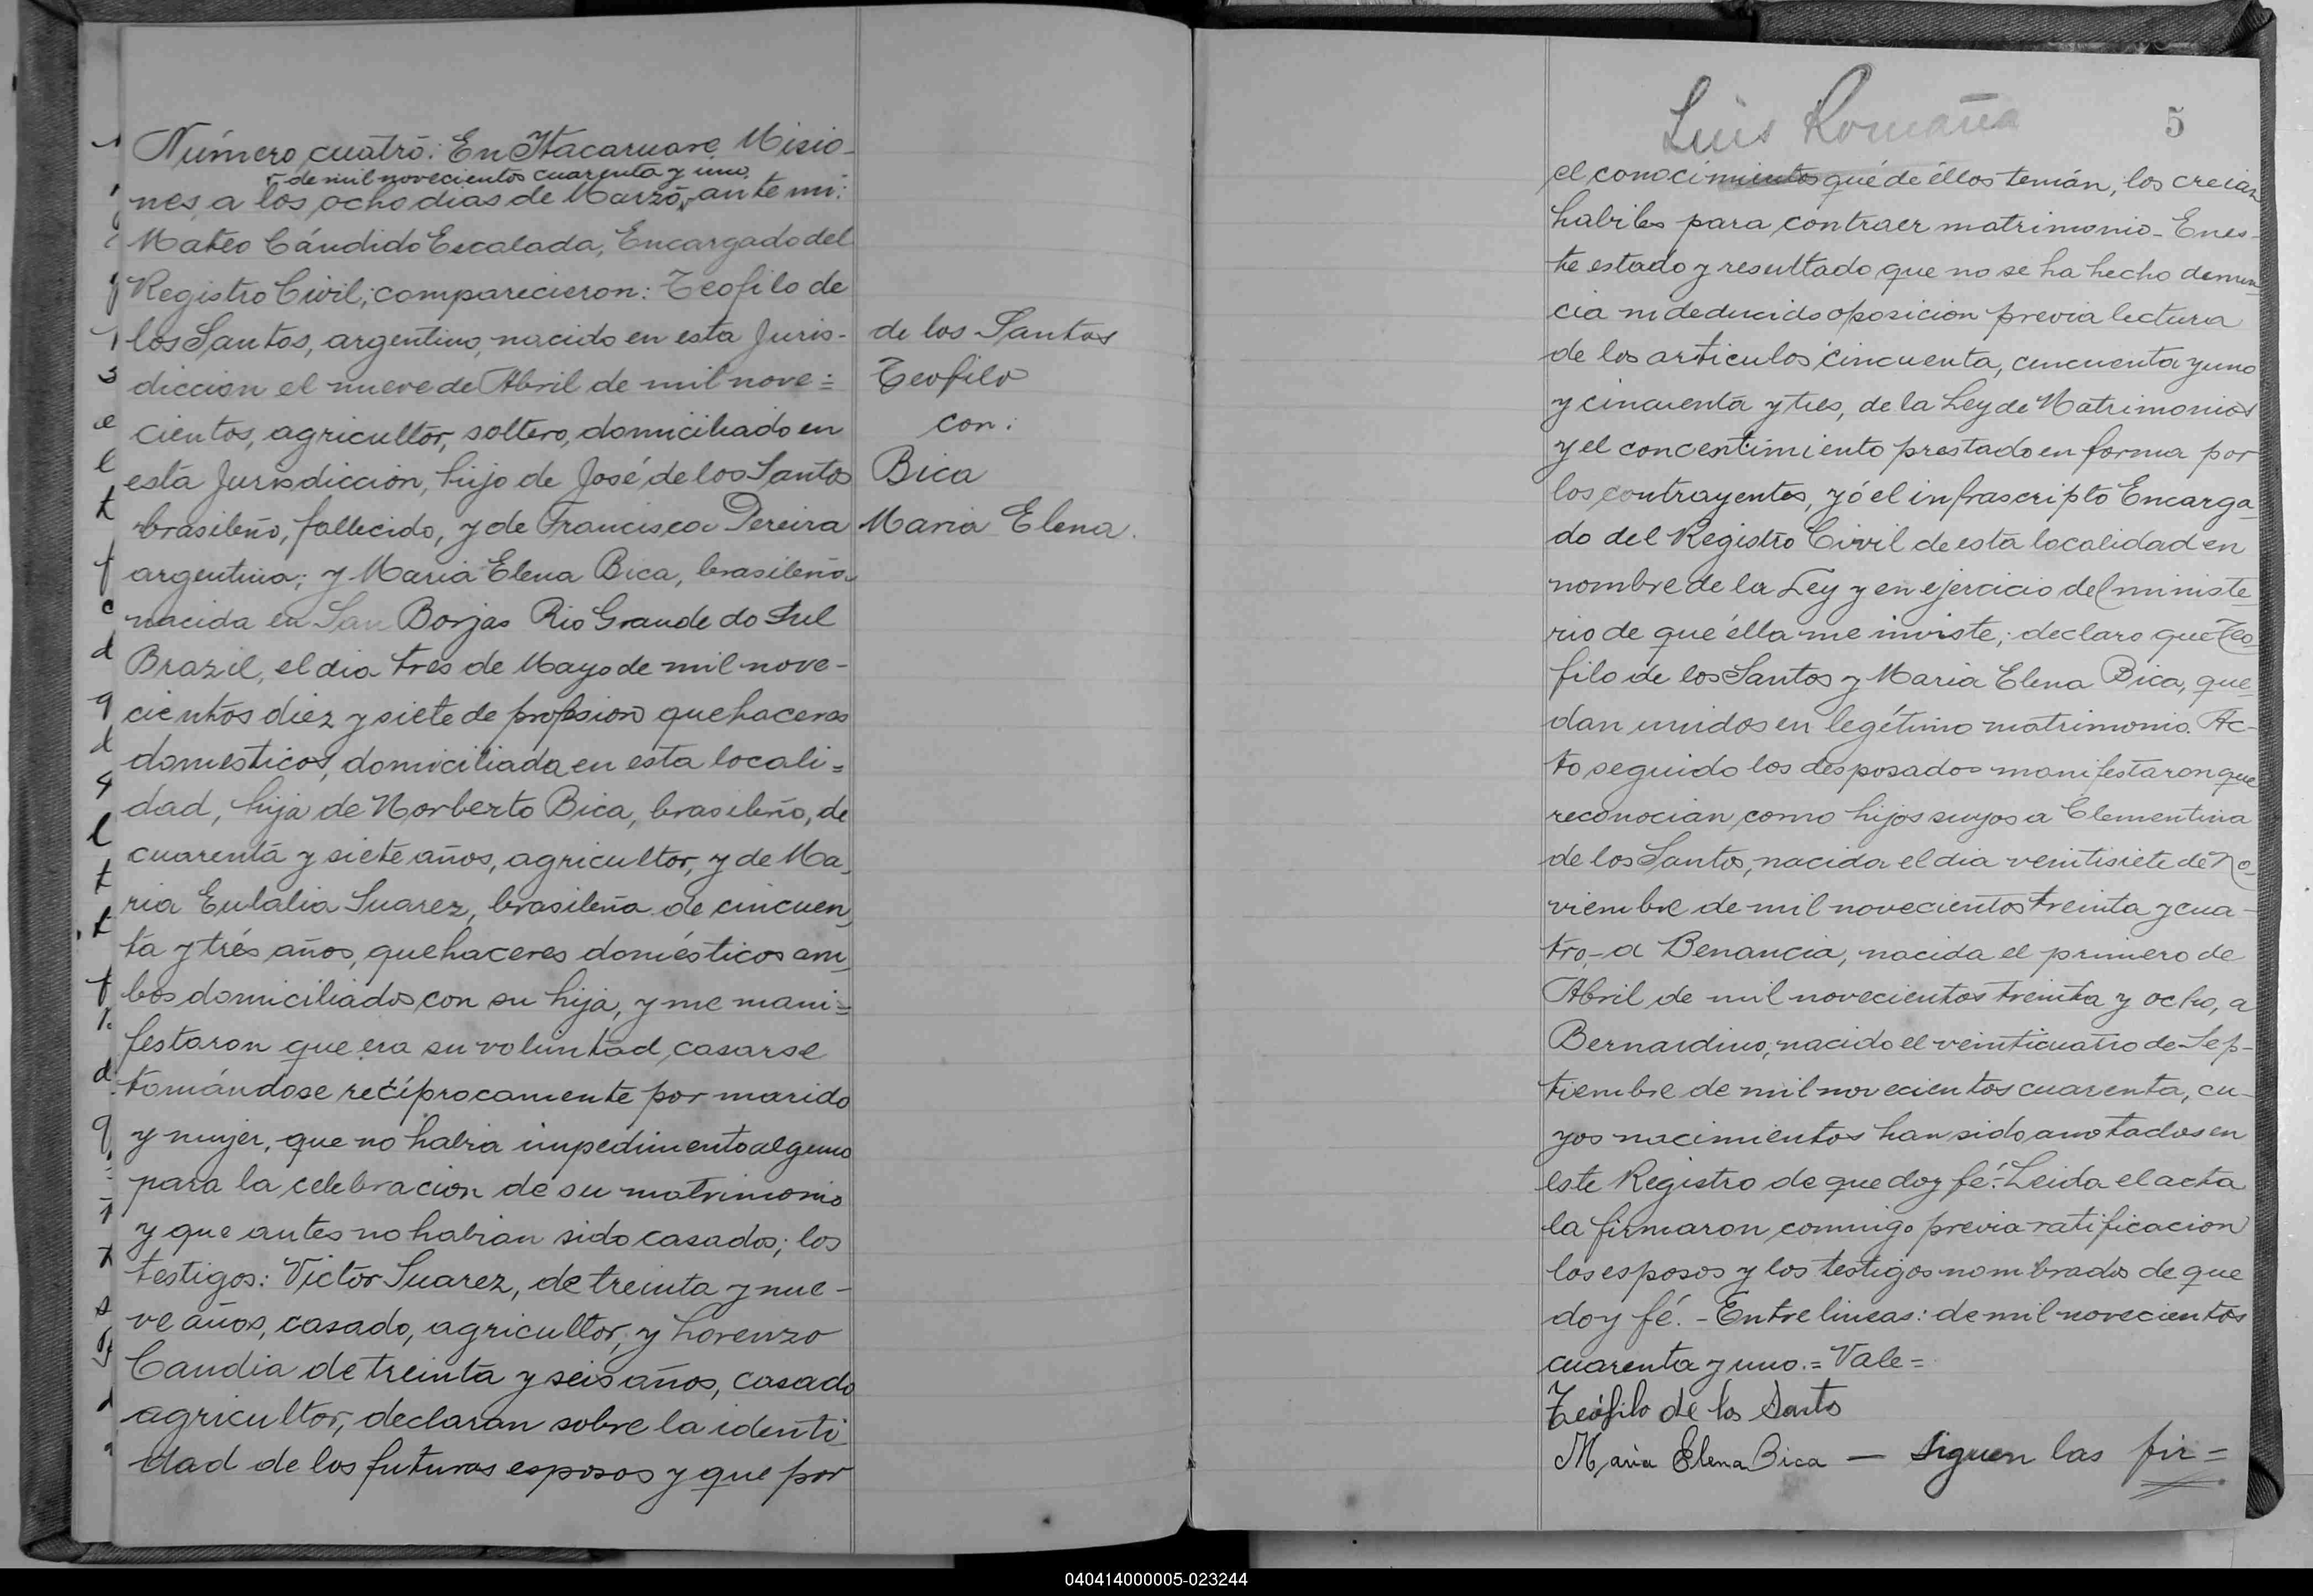 Número cuatro: En Itacaruare, Misio-
de mil novecientos cuarenta y uno,
nes, a los ocho dias de Marzo, ante mi:
Mateo Cándido Escalada, Encargado del
Registro Civil; comparecieron: Teofilo de
los Santos, argentino, nacido en esta Juris-
diccion el nueve de Abril de mil nove=
cientos, agricultor, soltero, domiciliado en
esta Jurisdiccion, hijo de José de los Santos
brasileño, fallecido, y de Francisca Pereira
argentina; y Maria Elena Bica, brasileña
nacida en San Borjas Rio Grande do Sul
Brazil, el dia tres de Mayo de mil nove-
cientos diez y siete de profesion quehaceres
domesticos, domiciliada en esta locali=
dad, hija de Norberto Bica, brasileño, de
cuarenta y siete años, agricultor, y de Ma-
ria Eulalia Suarez, brasileña de cincuen-
ta y trés años, quehaceres domésticos am-
bos domiciliados con su hija, y me mani=
festaron que era su voluntad casarse
tomándose reciprocamente por marido
y mujer, que no habia impedimento alguno
para la celebracion de su matrimonio
y que antes no habian sido casados; los
testigos: Victor Suarez, de treinta y nue-
ve años, casado, agricultor, y Lorenzo
Candia de treinta y seis años, casado
agricultor, declaran sobre la identi-
dad de los futuros esposos y que por
de los Santos
Teofilo
con:
Bica
Maria Elena.
Luis Romaña
5
el conocimiento que de éllos tenián, los creian
habiles para contraer matrimonio- En es-
te estado y resultado que no se ha hecho denun-
cia ni deducido oposicion previa lectura
de los articulos cincuenta, cincuenta y uno
y cincuenta y tres, de la Ley de Matrimonios
y el concentimiento prestado en forma por
los contrayentes, yó el infrascripto Encarga-
do del Registro Civil de esta localidad en
nombre de la Ley y en ejercicio del ministe-
rio de que élla me inviste, declaro que Teo-
filo de los Santos y Maria Elena Bica, que-
dan unidos en legétimo matrimonio. Ac-
to seguido los desposados manifestaron que
reconocian como hijos suyos a Clementina
de los Santos, nacida el dia veintisiete de No-
viembre de mil novecientos treinta y cua-
tro,- a Benancia, nacida el primero de
Abril de mil novecientos treinta y ocho, a
Bernardino, nacido el veinticuatro de Sep-
tiembre de mil novecientos cuarenta, cu-
yos nacimientos han sido anotados en
este Registro de que doy fé.- Leida el acta
la firmaron conmigo previa ratificacion
los esposos y los testigos nombrados de que
doy fé. - Entre lineas: de mil novecientos
cuarenta y uno.= Vale=
Teófilo de los Santo
Maria Elena Bica — Siguen las fir=
040414000005-023244